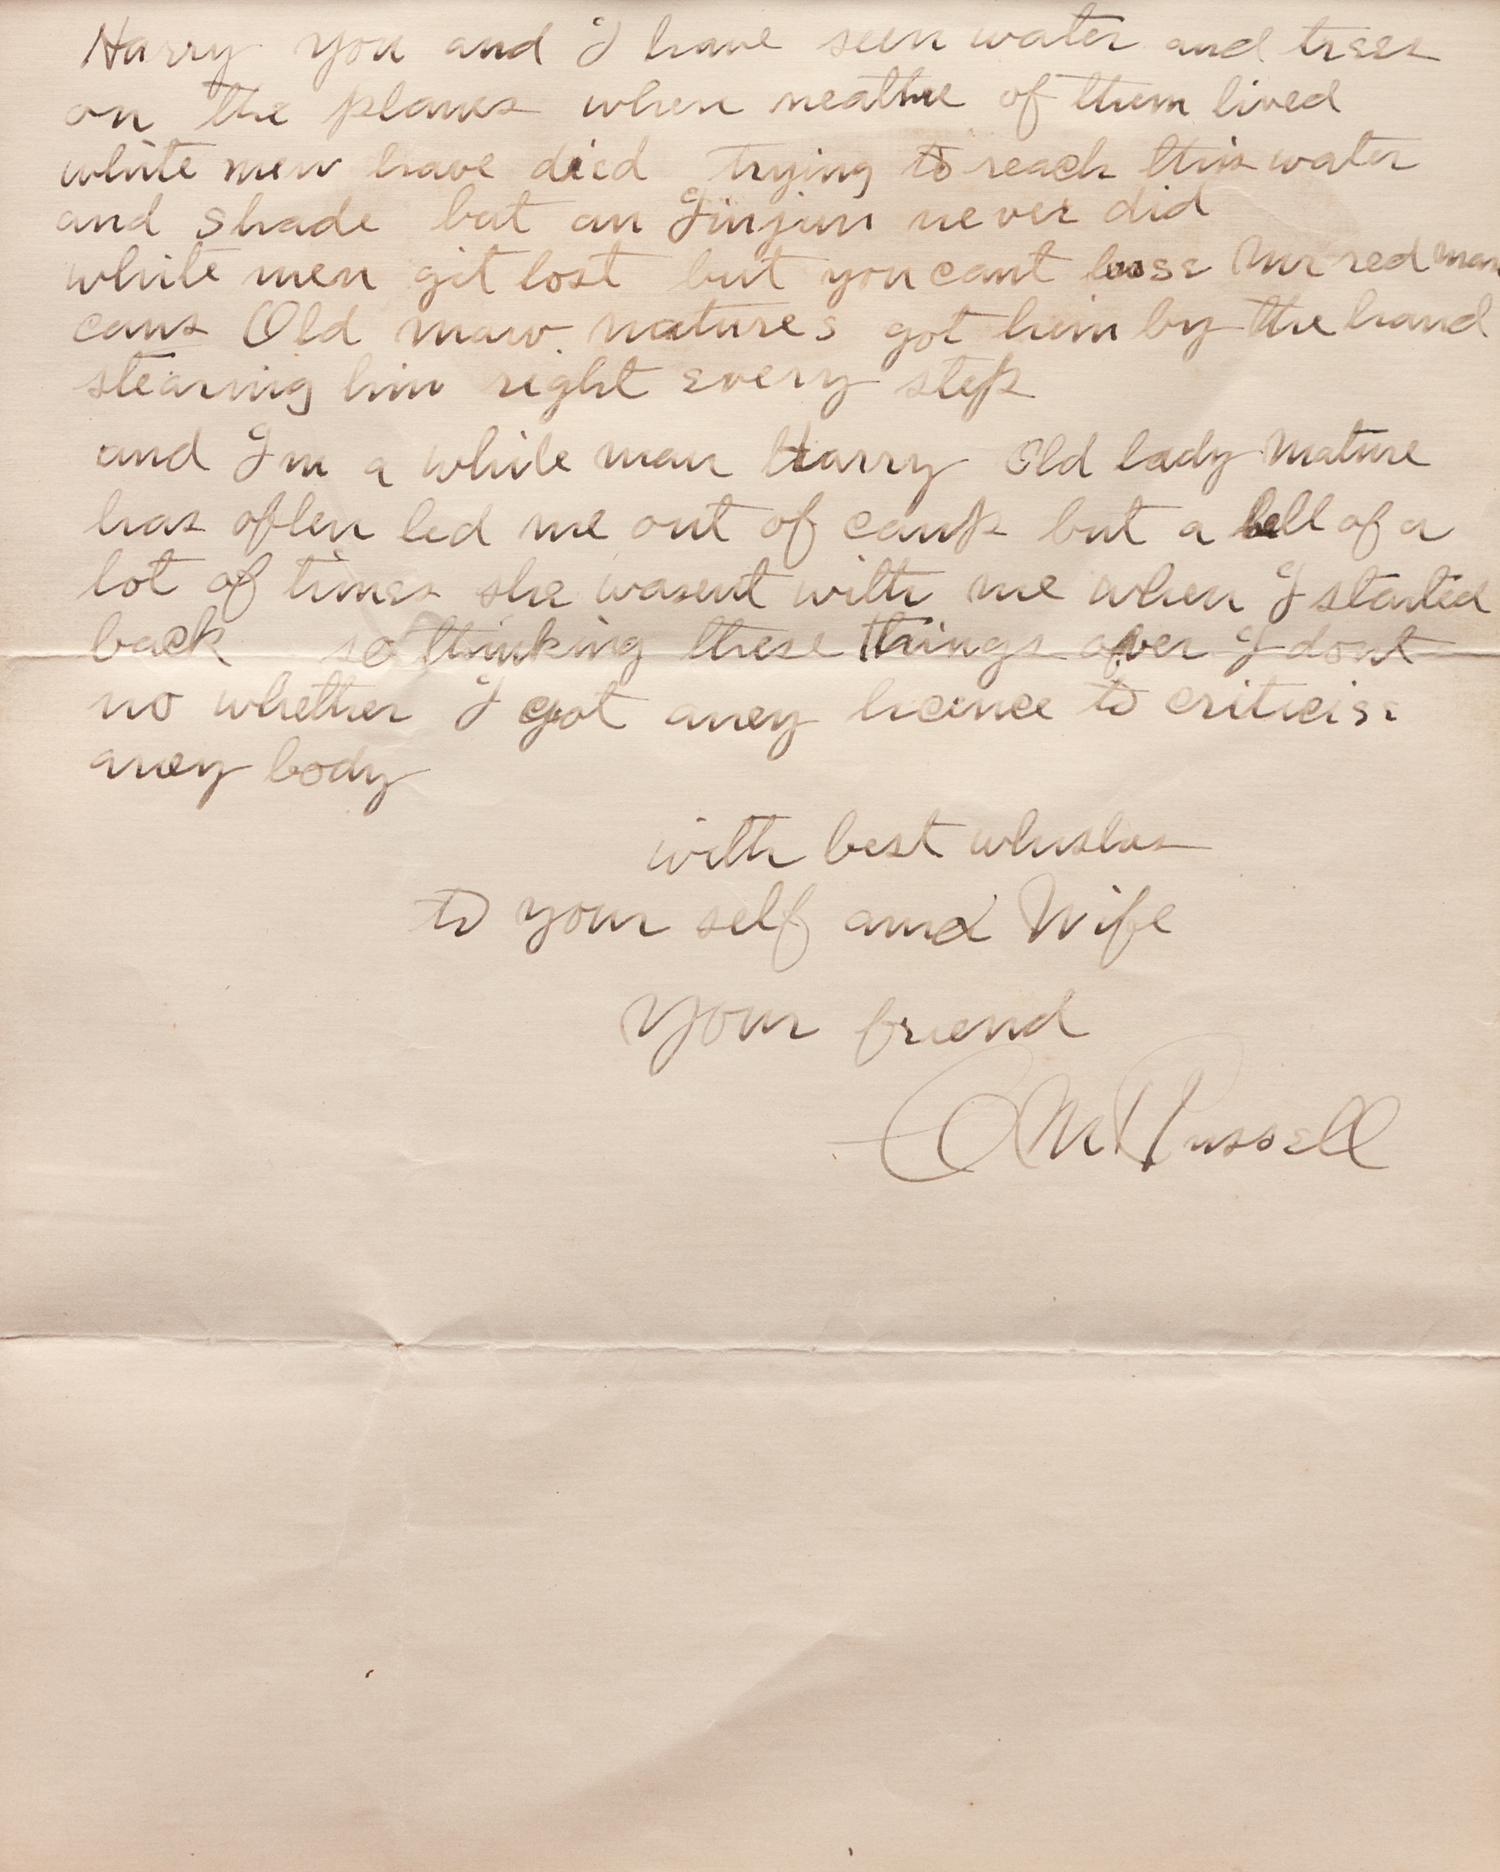 Harry you and I have seen water and trees
on the planes when neathe of them lived
white men have died trying to reach this water
and shade but an Jinjun never did
white men git lost but you cant loose Mr red man
caus Old maw natures got him by the hand
stearing him right every step
and Im a white man Harry Old lady Nature
has often led me out of camp but a hell of a
lot of times she wasent with me when I started
back so thinking these things over I dont
no whether I got aney licence to criticise
aney body
with best whishes
to your self and Wife
Your friend
CM Russell